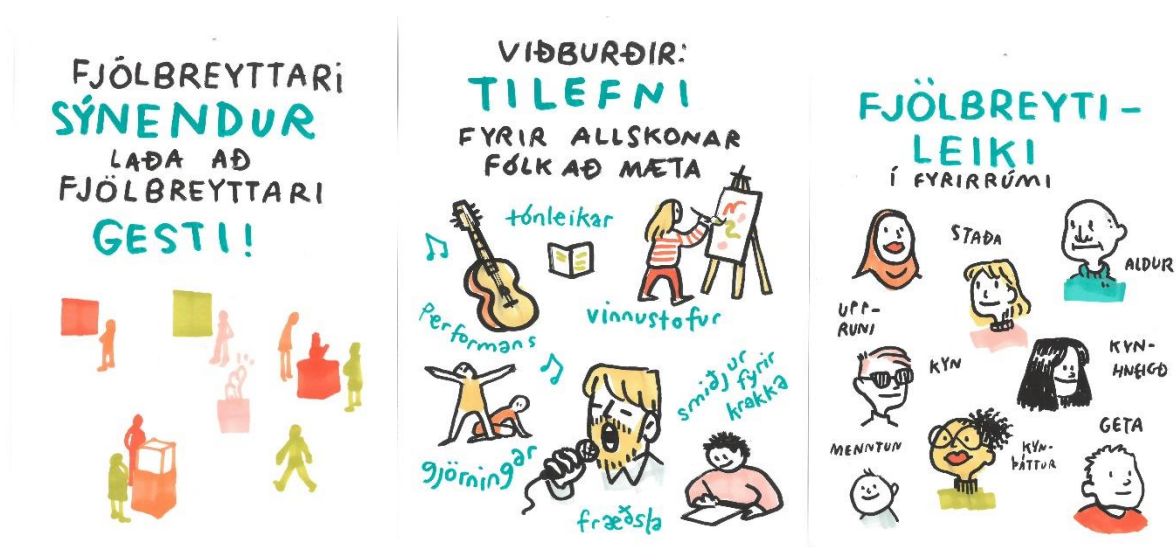 FJÖLBREYTTARI
SÝNENDUR
LAÐA AÐ
FJÖLBREYTTARI
GESTI!
VIÐBURÐIR:
TILEFNI
FYRIR ALLSKONAR
FÓLK AÐ MÆTA
tónleikar
Performans
vinnustofur
smiðjur
fyrir
krakka
gjörningar
fræðsla
FJÖLBREYTI-
LEIKI
Í FYRIRRÚMI
STAÐA
ALDUR
UPP-
RUNI
KYN
KYN-
HNEIGÐ
MENNTUN
KYN-
ÞÁTTUR
GETA